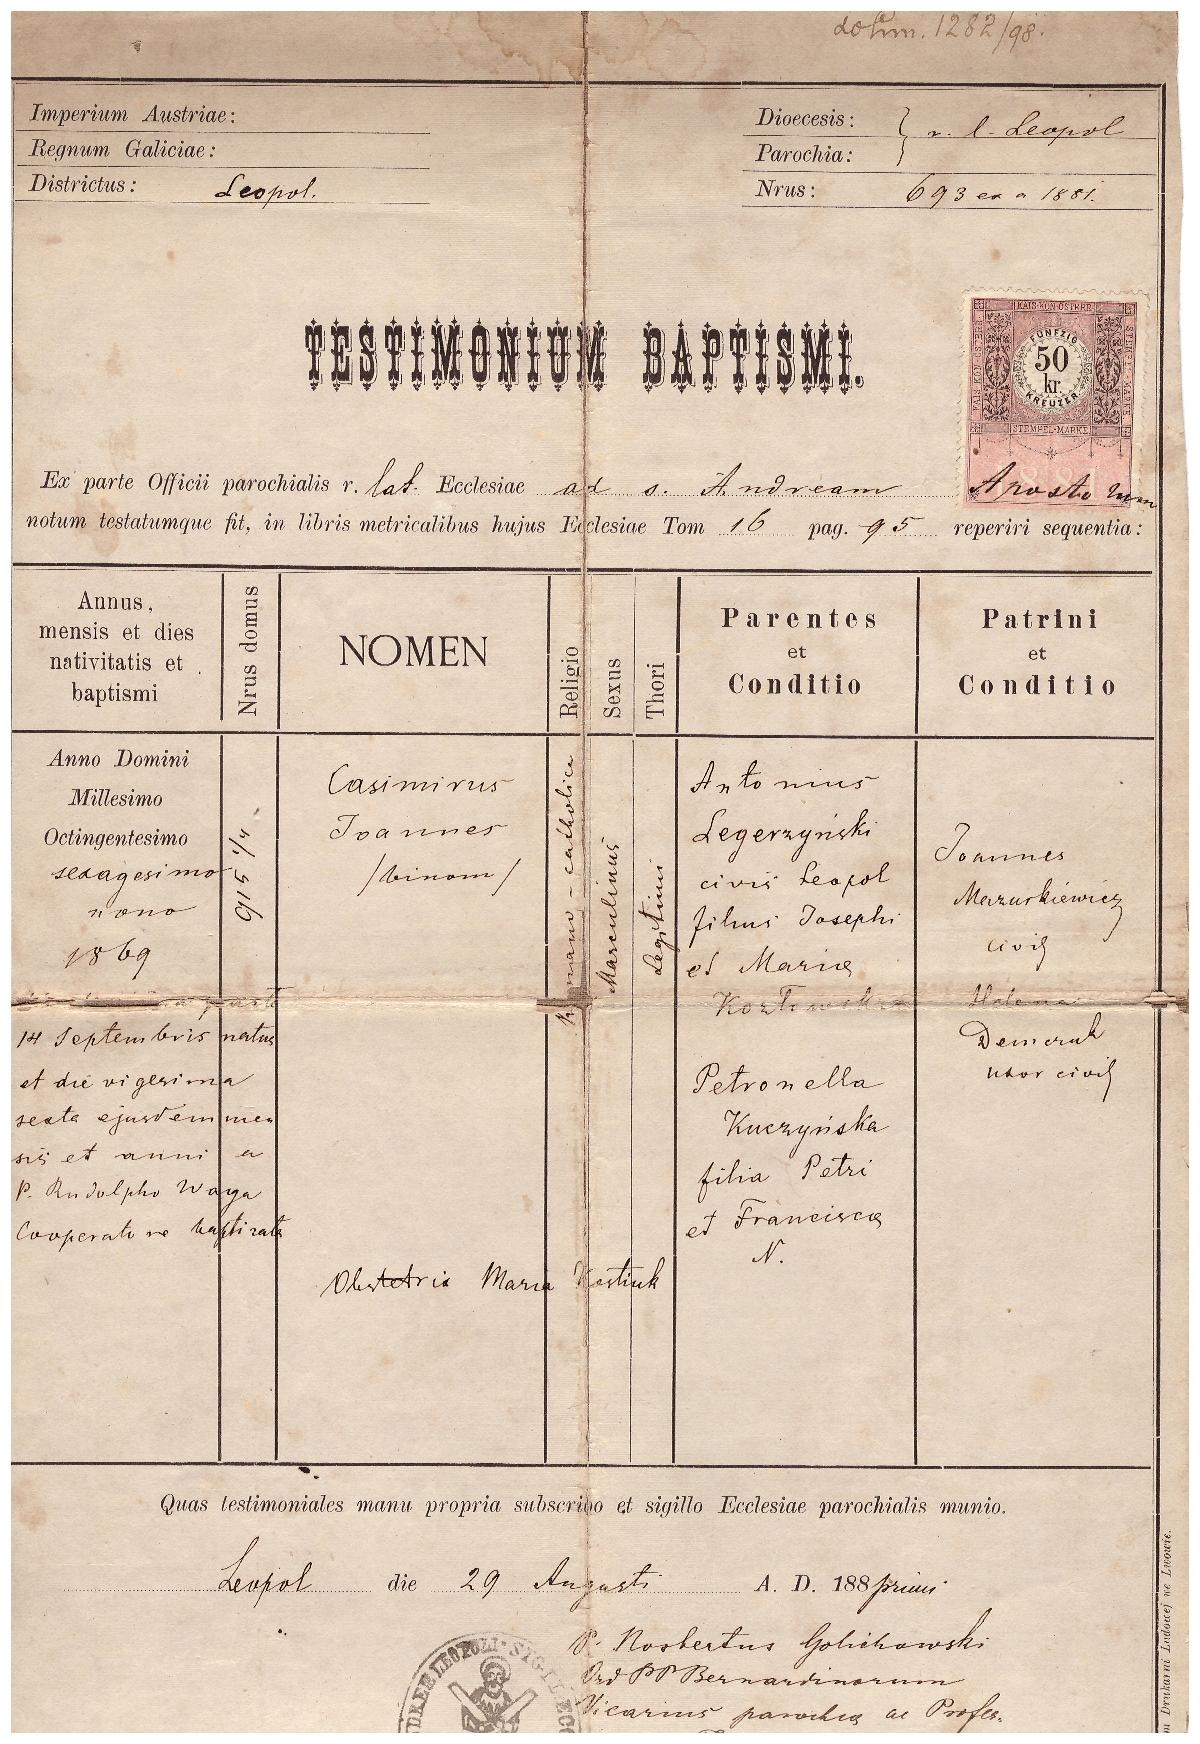 dolum. 1282/98.
Imperium Austriae:
Regnum Galiciae:
Districtus: Leopol.
Dioecesis: } r. l. Leopol
Parochia:
Nrus: 693 ex a 1881.
KAIS·KÖN·ÖSTERR
FÜNFZIG
50
kr.
KREUZER
STEMPEL-MARKE
1881
TESTIMONIUM BAPTISMI.
Ex parte Officii parochialis r. lat. Ecclesiae ad s. Andream Apostolum
notum testatumque fit, in libris metricalibus hujus Ecclesiae Tom 16 pag. 95 reperiri sequentia:
Annus,
mensis et dies
nativitatis et
baptismi
Nrus domus
NOMEN
Religio
Sexus
Thori
Parentes
et
Conditio
Patrini
et
Conditio
Anno Domini
Millesimo
Octingentesimo
sexagesimo
nono
1869
14 Septembris natus
et die vigesima
sexta ejusdem men
sis et anni a
P. Rudolpho Waga
Cooperatore baptizatus
915 1/4
Casimirus
Joannes
/binom/
Romano-catholica
Masculinus
Legitimi
Antonius
Legerzyński
civis Leopol
filius Josephi
et Mariæ
Kozłowska
Petronella
Kuczyńska
filia Petri
et Franciscæ
N.
Joannes
Mazurkiewicz
civis
Helena
Demczuk
uxor civis
Obstetrix Maria Kostiuk
Quas testimoniales manu propria subscribo et sigillo Ecclesiae parochialis munio.
Leopol die 29 Augusti A. D. 188primi
P. Norbertus Golichowski
Ord PP Bernardinorum
Vicarius parochiæ ac Profes-
Drukarni Ludowej we Lwowie.